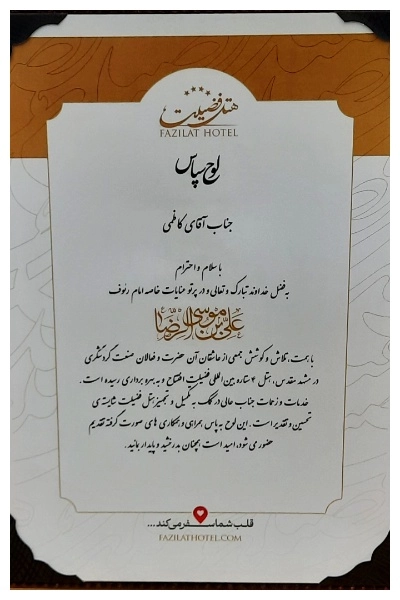 هتل فضیلت
FAZILAT HOTEL
لوح سپاس
جناب آقای کاظمی
با سلام و احترام
به فضل خداوند تبارک و تعالی و در پرتو عنایات خاصه امام رئوف
علی بن موسی الرضا
با همت، تلاش و کوشش جمعی از عاشقان آن حضرت و فعالان صنعت گردشگری
در مشهد مقدس، هتل ۴ ستاره بین المللی فضیلت افتتاح و به بهره برداری رسیده است.
خدمات و زحمات جناب عالی در کمک به تکمیل و تجهیز هتل فضیلت شایسته‌ی
تحسین و تقدیر است. این لوح به پاس همراهی و همکاری های صورت گرفته تقدیم
حضور می شود، امید است همچنان بدرخشید و پایدار بمانید.
قلب شما سفر می‌کند...
FAZILATHOTEL.COM